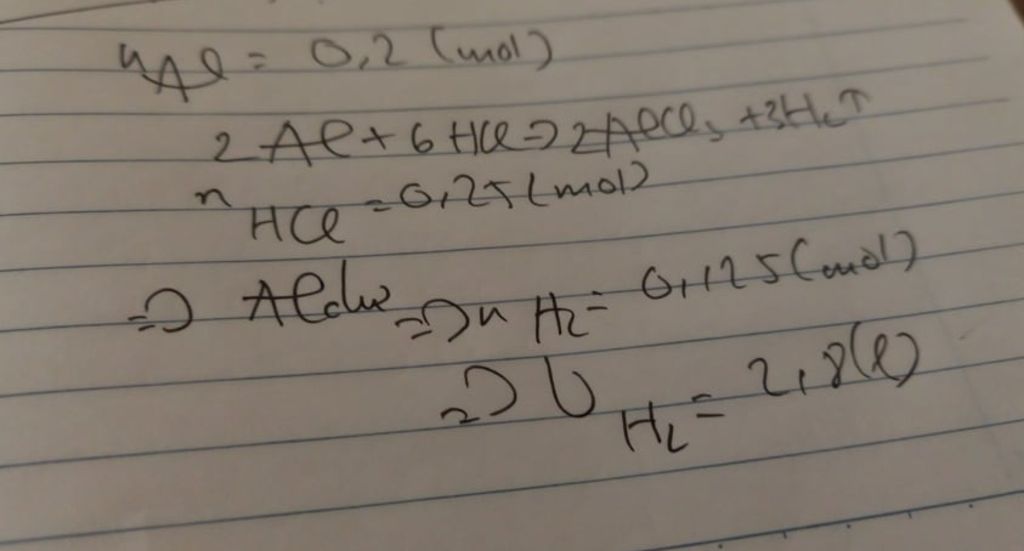 nAl = 0,2 (mol)
2Al + 6HCl => 2AlCl3 + 3H2↑
nHCl = 0,25 (mol)
=> Al dư => nH2 = 0,125 (mol)
=> VH2 = 2,8 (l)